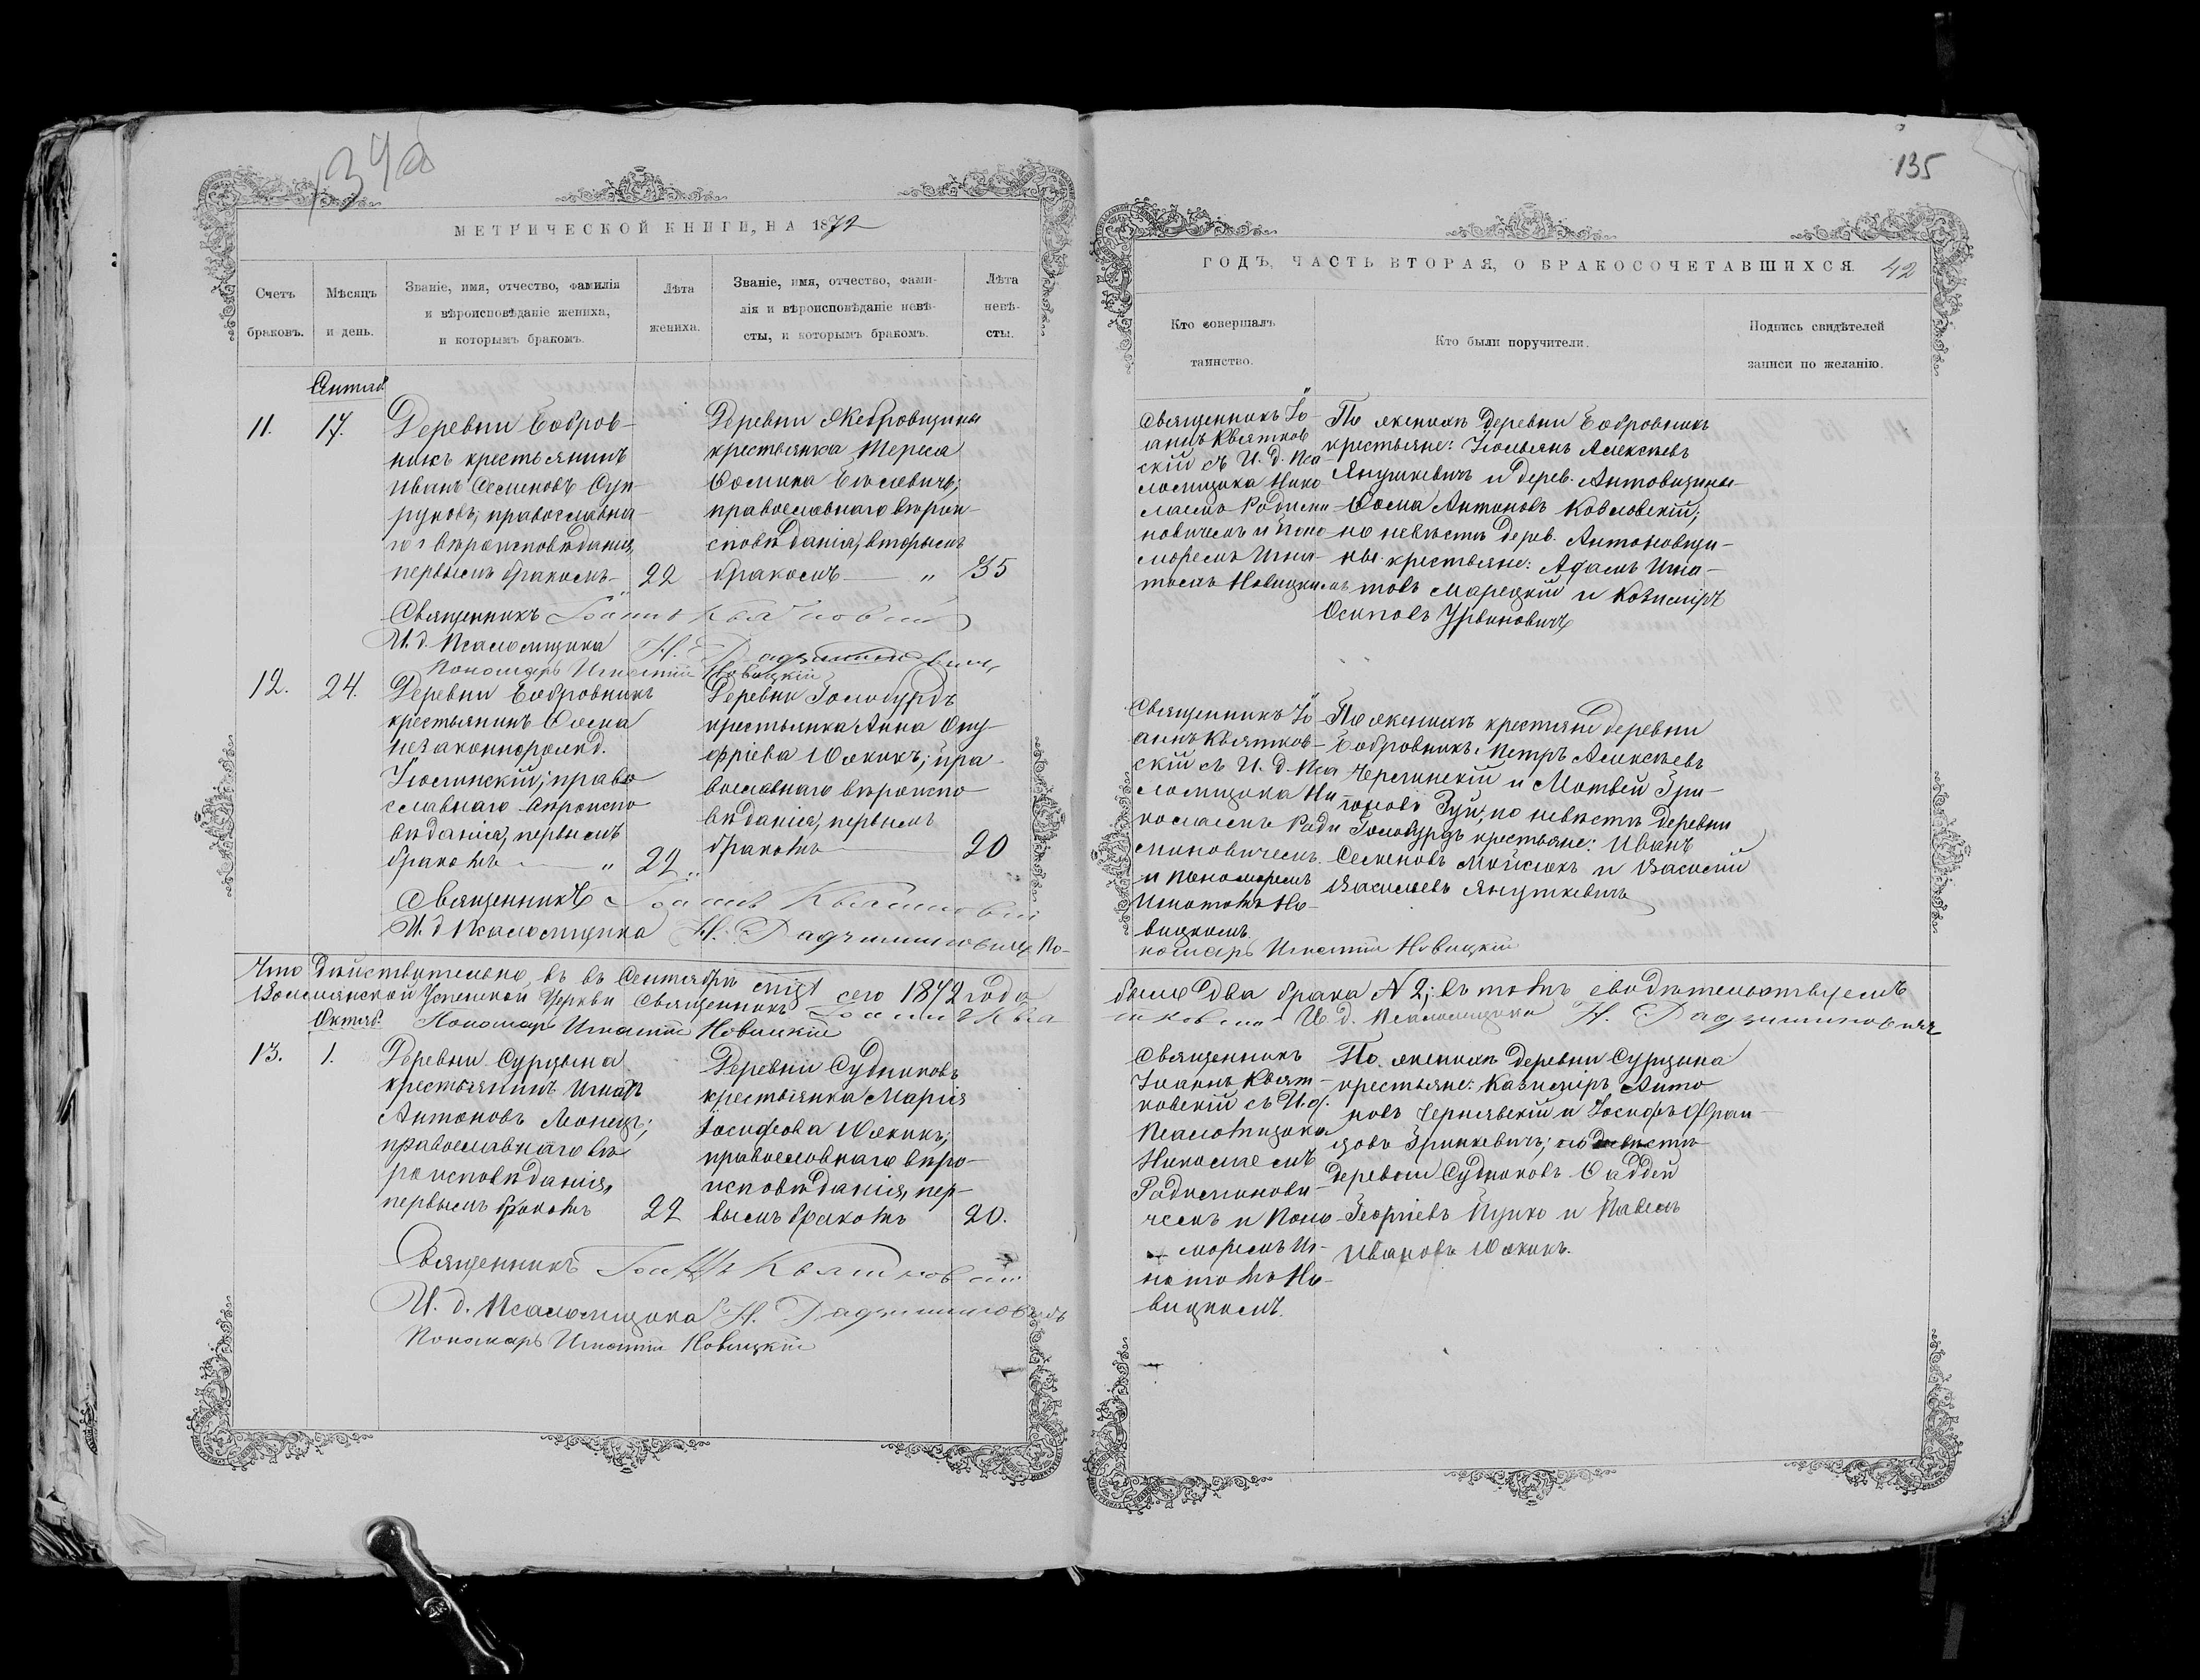 134об
МЕТРИЧЕСКОЙ КНИГИ, НА 1872
Счетъ браковъ.
Мѣсяцъ и день.
Званіе, имя, отчество, фамилія
и вѣроисповѣданіе жениха,
и которымъ бракомъ.
Лѣта жениха.
Званіе, имя, отчество, фами-
лія и вѣроисповѣданіе невѣ-
сты, и которымъ бракомъ.
Лѣта невѣ-
сты.
Сентяб.
11.
17.
Деревни Бобров-
никъ крестьянинъ
Иванъ Семеновъ Суп-
руновъ, православна-
го вѣроисповѣданія,
первымъ бракомъ
22
Деревни Жебровщины
крестьянка Тереса
Ѳомина
православнаго вѣрои-
сповѣданія, вторымъ
бракомъ „
35
Священникъ Іоаннъ Квятковскій
И. д. Псаломщика Н. Радзиминовичъ
Пономарь Игнатій Новицкій
12.
24.
Деревни Бобровникъ
крестьянинъ Ѳома
незаконнорожд.
православнаго вѣроиспо
вѣданія, первымъ
бракомъ „
22
Деревни Голобурдъ
крестьянка Анна Ону
фріева Южикъ; пра-
вославнаго вѣроиспо
вѣданія, первымъ
бракомъ
20
Священникъ Іоаннъ Квятковскій
И. д. Псаломщика Н. Радзиминовичъ По-
Что дѣйствительно въ въ Сентябрѣ мцѣ сего 1872 года
Успенской Церкви Священникъ Іоаннъ Квя
Октяб.
Пономарь Игнатій Новицкій
13.
1.
Деревни Сурщина
крестьянинъ Игнатъ
Антоновъ Монецъ;
православнаго вѣ
роисповѣданія,
первымъ бракомъ
22
Деревни Судниковъ
крестьянка Марія
Іосифова Южикъ;
православнаго вѣро-
исповѣданія, пер-
вымъ бракомъ
20.
Священникъ Іоаннъ Квятковскій
И. д. Псаломщика Н. Радзиминовичъ
Пономарь Игнатій Новицкій
135
ГОДЪ, ЧАСТЬ ВТОРАЯ, О БРАКОСОЧЕТАВШИХСЯ.
42
Кто совершалъ
таинство.
Кто были поручители.
Подпись свидѣтелей
записи по желанію.
Священникъ Іо-
аннъ Квятков
скій съ И. д. Пса
ломщика Нико
лаемъ Радзими
новичемъ и Поно
моремъ Игна-
тіемъ Новицкимъ
По женихѣ деревни Бобровникъ
крестьяне: Юльянъ Алексѣевъ
Янушкевичъ и дерев. Антовщины
Ѳома Антоновъ Козловскій;
по невѣстѣ дерев. Антоновщи-
ны крестьяне: Адамъ Игна-
товъ Марецкій и Казиміръ
Осиповъ Урбановичъ
Священникъ Іо-
аннъ Квятков-
скій съ И. д. Пса
ломщика Ни
колаемъ Радзи
миновичемъ
и Пономаремъ
Игнатомъ Но-
вицкимъ
По женихѣ крестьяне деревни
Бобровникъ: Петръ Алексѣевъ
и Матвѣй Гри-
горовъ Зуй; по невѣстѣ деревни
Голобурдъ крестьяне: Иванъ
Семеновъ и Василій
Васильевъ Янушкевичъ
номарь Игнатій Новицкій
было два брака № 2; въ томъ свидѣтельствуемъ
тковскій И. д. Псаломщика Н. Радзиминовичъ
Священникъ
Іоаннъ Квят-
ковскій съ И. д.
Псаломщика
Николаемъ
Радзиминови-
чемъ и Поно
моремъ Иг-
натомъ Но-
вицкимъ.
По женихѣ деревни Сурщина
крестьяне: Казиміръ Анто
новъ Чернявскій и Іосифъ Фран-
цовъ Гринкевичъ; по невѣстѣ
деревни Судниковъ Ѳаддей
Георгіевъ Пупко и Павелъ
Ивановъ Южикъ.